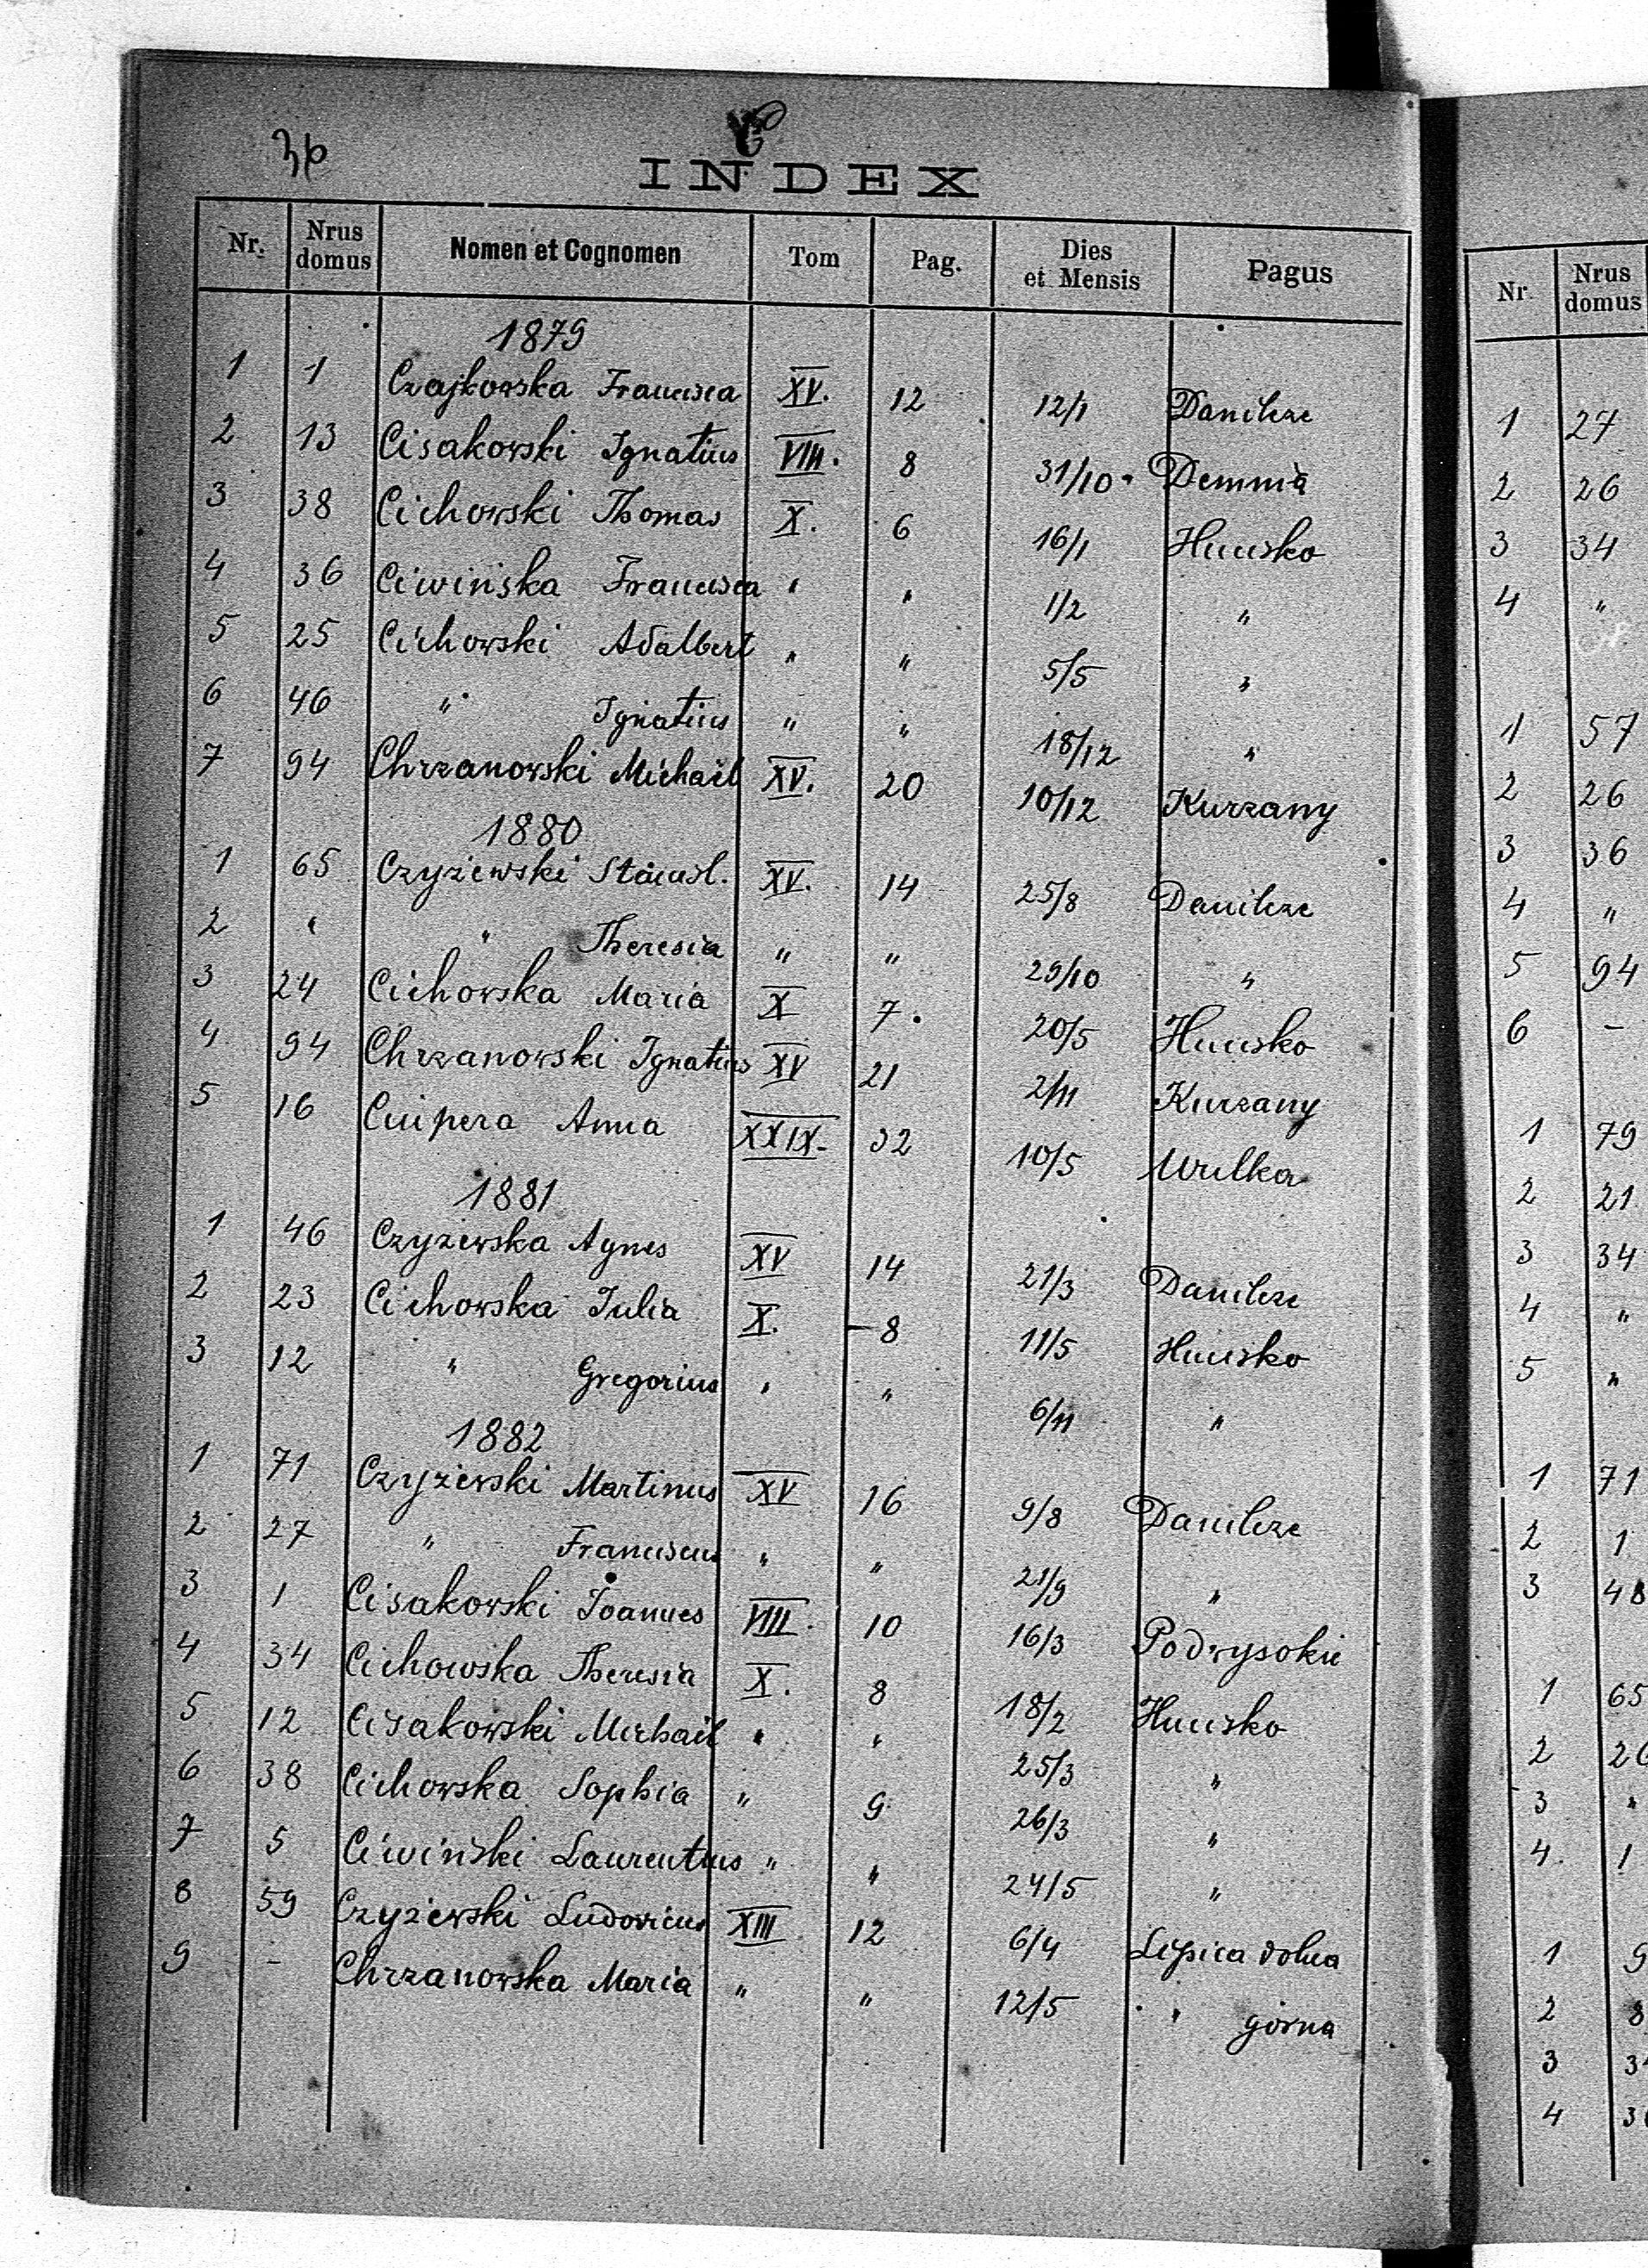 36
C
INDEX
Nr. Nrus domus Nomen et Cognomen Tom Pag. Dies et Mensis Pagus
1879
1 1 Czajkowska Francisca XV. 12 12/1 Danilcze
2 13 Cisakowski Ignatius VIII. 8 31/10 Demnia
3 38 Cichowski Thomas X. 6 16/1 Hucisko
4 36 Ciwińska Francisca " " 1/2 "
5 25 Cichowski Adalbert " " 5/5 "
6 46 " Ignatius " " 18/12 "
7 94 Chrzanowski Michael XV. 20 10/12 Kurzany
1880
1 65 Czyżewski Stanisl. XV. 14 25/8 Danilcze
2 " " Theresia " " 29/10 "
3 24 Cichowska Maria X 7. 20/5 Hucisko
4 94 Chrzanowski Ignatius XV 21 2/11 Kurzany
5 16 Anna XXIX. 32 10/5 Wulka
1881
1 46 Czyżewska Agnes XV 14 21/3 Danilcze
2 23 Cichowska Julia X. 8 11/5 Hucisko
3 12 " Gregorius " " 6/11 "
1882
1 71 Czyżewski Martinus XV 16 9/8 Danilcze
2 27 " Franciscus " " 21/9 "
3 1 Cisakowski Joannes VIII. 10 16/3 Podwysokie
4 34 Cichowska Theresia X. 8 18/2 Hucisko
5 12 Cisakowski Michail " " 25/3 "
6 38 Cichowska Sophia " 9 26/3 "
7 5 Ciwiński Laurentius " " 24/5 "
8 59 Czyżewski Ludovicus XIII 12 6/4 Lipica dolna
9 - Chrzanowska Maria " " 12/5 " górna
Nr. Nrus domus
1 27
2 26
3 34
4 "
1 57
2 26
3 36
4 "
5 94
6 -
1 79
2 21
3 34
4 "
5 "
1 71
2 1
3 48
1 65
2
3 "
4 1
1 9
2 8
3
4